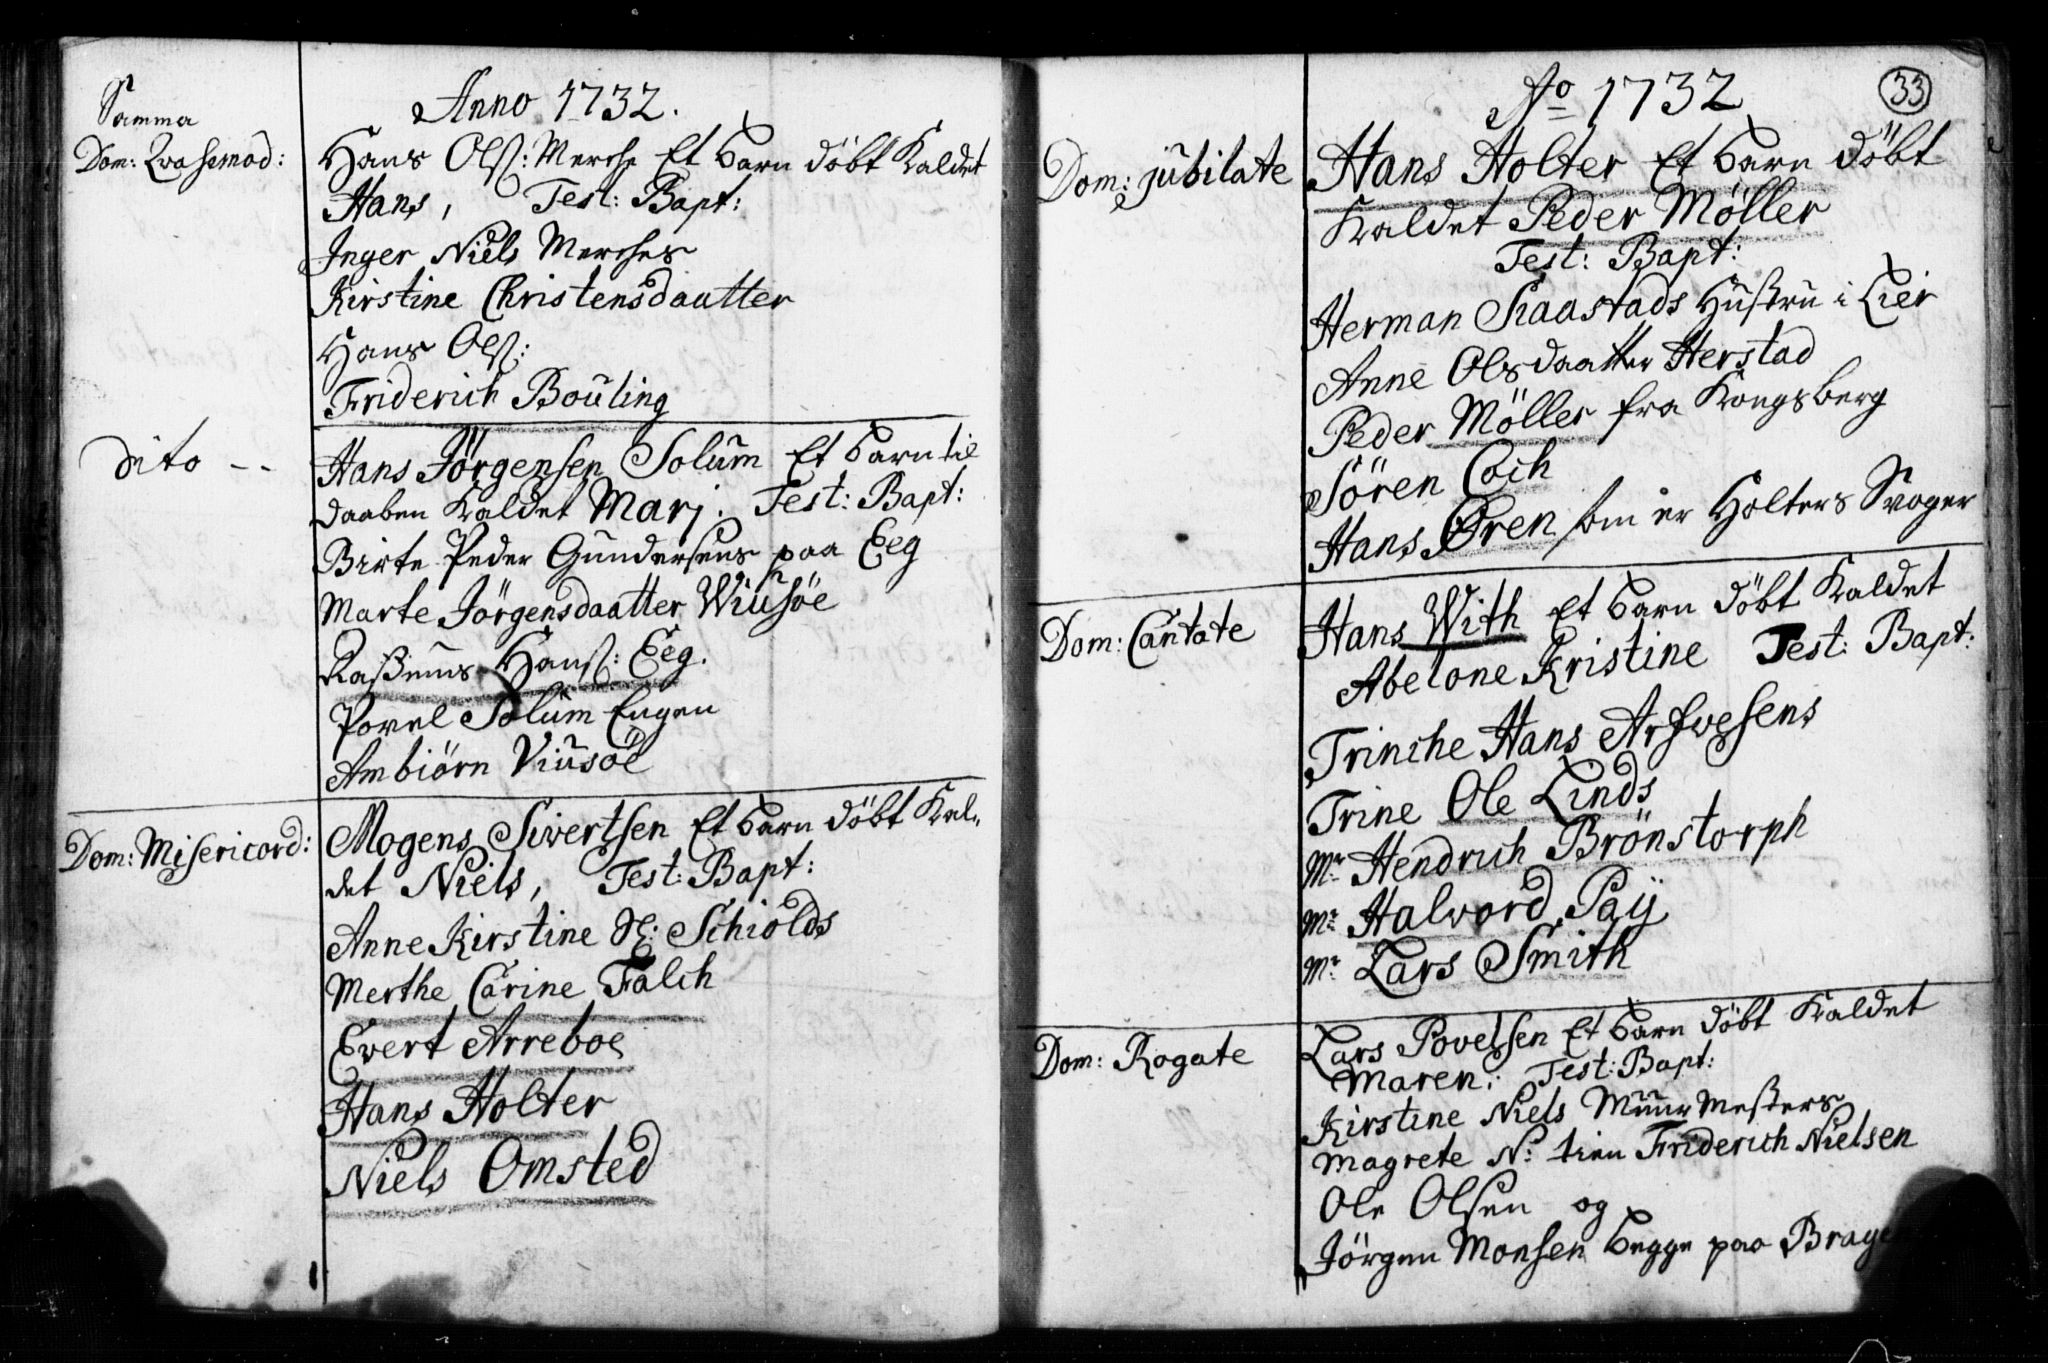 Anno 1732.
Samma
Dom: Qvasimod:
Hans Olss: Merche Et barn döbt Kaldet
Hans, Test: Bapt:
Inger Niels Merches
Kirstine Christensdaatter
Hans Olss:
Friderich Boüling
Dito --
Hans Jörgensen Solüm Et barn til
daaben Kaldet Marj. Test: Bapt:
Birte Peder Gündersens paa Eeg
Marte Jörgensdaatter Wiüsöe
Rasmus Hanss: Eeg.
Povel Solüm Eugen
Ambiörn Viüsöe
Dom: Misericord:
Mogens Sivertsen Et barn döbt Kal„
det Niels, Test: Bapt:
Anne Kirstine Schiolds
Merthe Carine Falch
Evert Arreboe
Hans Holter
Niels Omsted
Ao 1732
33
Dom: jübilate
Hans Holter Et barn döbt
Kaldet Peder Møller
Test: Bapt:
Herman Skaastads Hüstrü i Lier
Anne Olsdaatter Herstad
Peder Möller fra Kongsberg
Sören Coch
Hans Ören som er Holters Svoger
Dom: Cantate
Hans With Et barn döbt Kaldet
Abelone Kristine Test: Bapt:
Trinche Hans Arfvesens
Trine Ole Linds
Mr Hendrich Brönstorph
Mr Halvord Paÿ
Mr Lars Smith
Dom: Rogate
Lars Povelsen Et barn döbt Kaldet
Maren: Test: Bapt:
Kirstine Niels Müürmesters
Magrete N: tien Friderich Nielsen
Ole Olsen og
Jörgen Monsen begge paa Brage